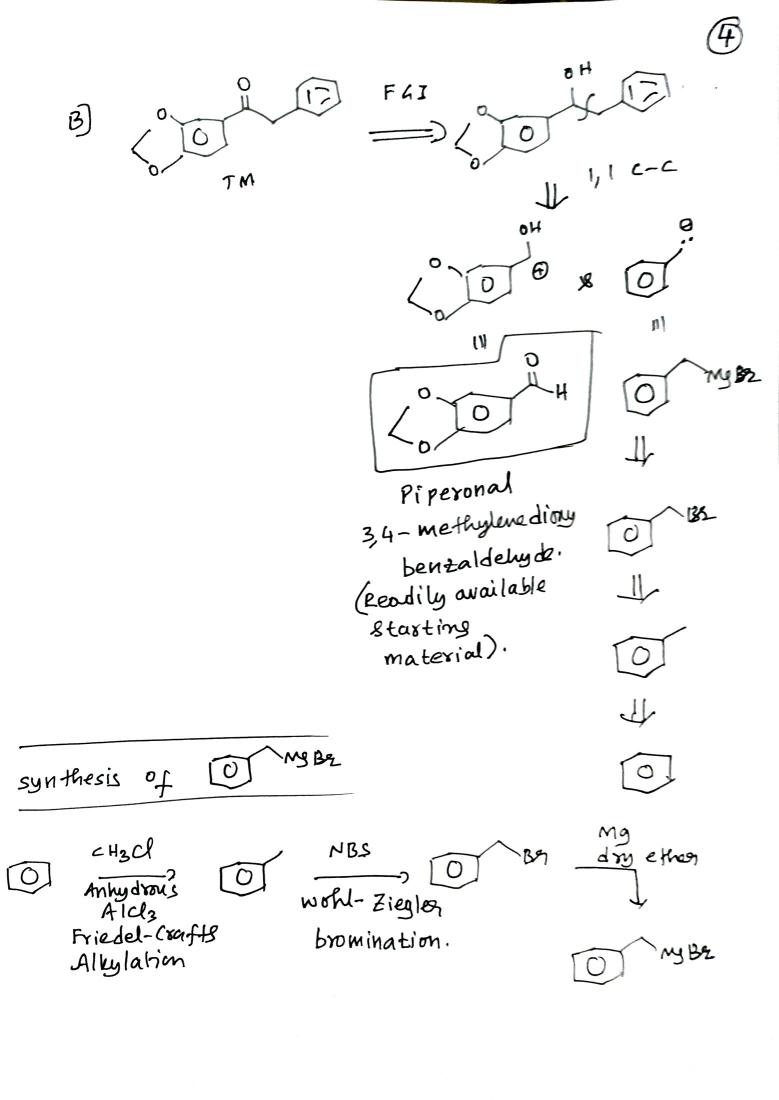 4
B]
O
O
O
TM
FGI
OH
O
O
1,1 C-C
OH
O
O
⊕
&
⊖
O
O
O
H
MgBr
Piperonal
3,4-methylenedioxy
benzaldehyde.
(Readily available
starting
material).
Br
synthesis of MgBr
CH3Cl
Anhydrous
AlCl3
Friedel-Crafts
Alkylation
NBS
Wohl-Ziegler
bromination.
Br
Mg
dry ether
MgBr